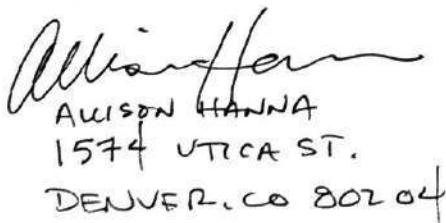 Allison Hanna
ALLISON HANNA
1574 UTICA ST.
DENVER, CO 80204